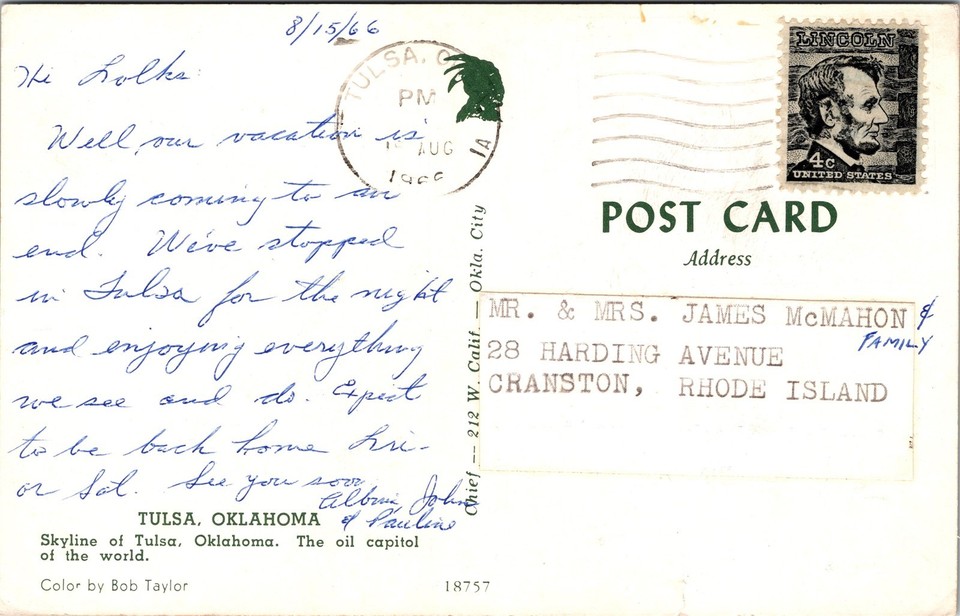 8/15/66
Hi Folks:
Well, our vacation is
slowly coming to an
end. We've stopped
in Tulsa for the night
and enjoying everything
we see and do. Expect
to be back home Fri-
or Sat. See you soon
John
& Pauline
TULSA, OKLAHOMA
Skyline of Tulsa, Oklahoma. The oil capitol
of the world.
Color by Bob Taylor
18757
TULSA, O
PM
AUG
Chief -- 212 W. Calif. — Okla. City
LINCOLN
4c
UNITED STATES
POST CARD
Address
MR. & MRS. JAMES McMAHON &
FAMILY
28 HARDING AVENUE
CRANSTON, RHODE ISLAND